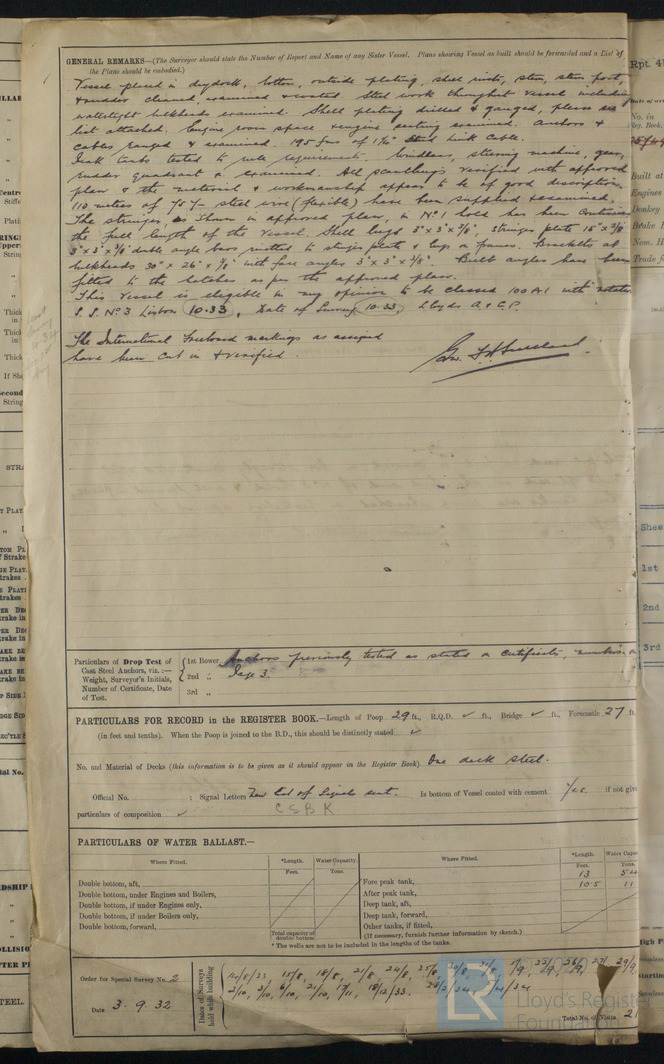 GENERAL REMARKS—(The Surveyor should state the Number of Report and Name of any Sister Vessel. Plans showing Vessel as built should be forwarded and a List of
the Plans should be embodied.)
Vessel placed in drydock, bottom, outside plating, shell rivets, stem, stern post,
& rudder cleaned, examined & coated. Steel work throughout vessel including
watertight bulkheads examined. Shell plating drilled & gauged, please see
list attached. Engine room space & engine seating examined. Anchors &
cables ranged & examined. 195 fms of 1 7/16" Stud link Cable.
Peak tanks tested to rule requirement. Windlass, steering machine, gear,
rudder quadrant & examined. All scantlings verified with approved
plan & the material & workmanship appear to be of good description.
110 metres of steel wire (flexible) have been supplied & examined.
The stringer, as shown in approved plan, in No 1 hold has been continued
the full length of the vessel. Shell lugs 3" x 3" x 3/8", Stringer plate 15" x 3/8"
3" x 3" x 3/8" double angle bars rivetted to stringer plate & lugs on frames. Brackets at
bulkheads 30" x 26" x 3/8" with face angles 3" x 3" x 3/8". Built angles have been
fitted to the hatches as per the approved plans.
This Vessel is eligible in my opinion to be classed 100 A1 with notation
S.S. No 3 Lisbon 10.33, Date of Survey 10.33, Lloyds A & C.P.
The International Freeboard markings as assigned
have been cut in & verified.
Particulars of Drop Test of
Cast Steel Anchors, viz.:—
Weight, Surveyor's Initials,
Number of Certificate, Date
of Test.
1st Bower Anchors previously tested as stated on Certificate,
2nd „ Page 3.
3rd „
PARTICULARS FOR RECORD in the REGISTER BOOK.—Length of Poop 29 ft., R.Q.D. ✓ ft., Bridge ✓ ft., Forecastle 27 ft.
(in feet and tenths). When the Poop is joined to the B.D., this should be distinctly stated ✓
No. and Material of Decks (this information is to be given as it should appear in the Register Book) One deck steel.
Official No. : Signal Letters New list of Signals sent. Is bottom of Vessel coated with cement Yes if not give
CSBK
particulars of composition ✓
PARTICULARS OF WATER BALLAST.—
Where Fitted. *Length. Water Capacity. Where Fitted. *Length. Water Capac
Feet. Tons. Feet. Tons.
Double bottom, aft, Fore peak tank, 13 54
Double bottom, under Engines and Boilers, After peak tank, 10.5 11
Double bottom, if under Engines only, Deep tank, aft,
Double bottom, if under Boilers only, Deep tank, forward,
Double bottom, forward, Other tanks, if fitted,
Total capacity of double bottom (If necessary, furnish further information by sketch.)
* The wells are not to be included in the lengths of the tanks.
Order for Special Survey No. 2
Date 3.9.32
Dates of Surveys held while building
14/8/33 15/8, 18/8, 21/8, 24/8, 25/8, 22/9, 26/9, 27/ 29/9
2/10, 3/10, 6/10, 21/10, 17/11, 18/12/33.
Total No. of Visits 21
Lloyd's Register
Foundation
Rpt. 4
No. in
Reg. Book.
Built at
Engines
Donkey
1st
2nd
3rd